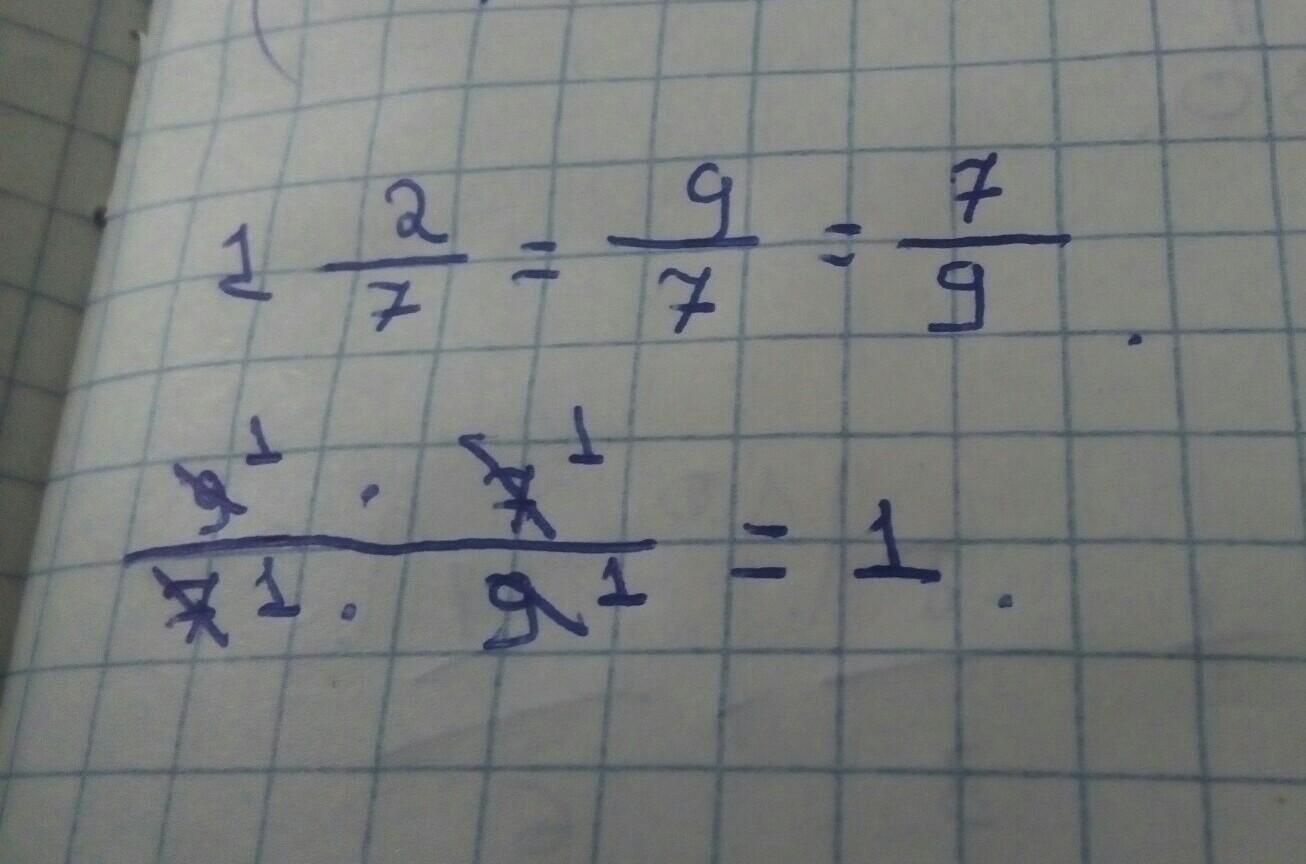 1 2/7 = 9/7 = 7/9.
9¹ · 7¹ / 7¹ · 9¹ = 1.